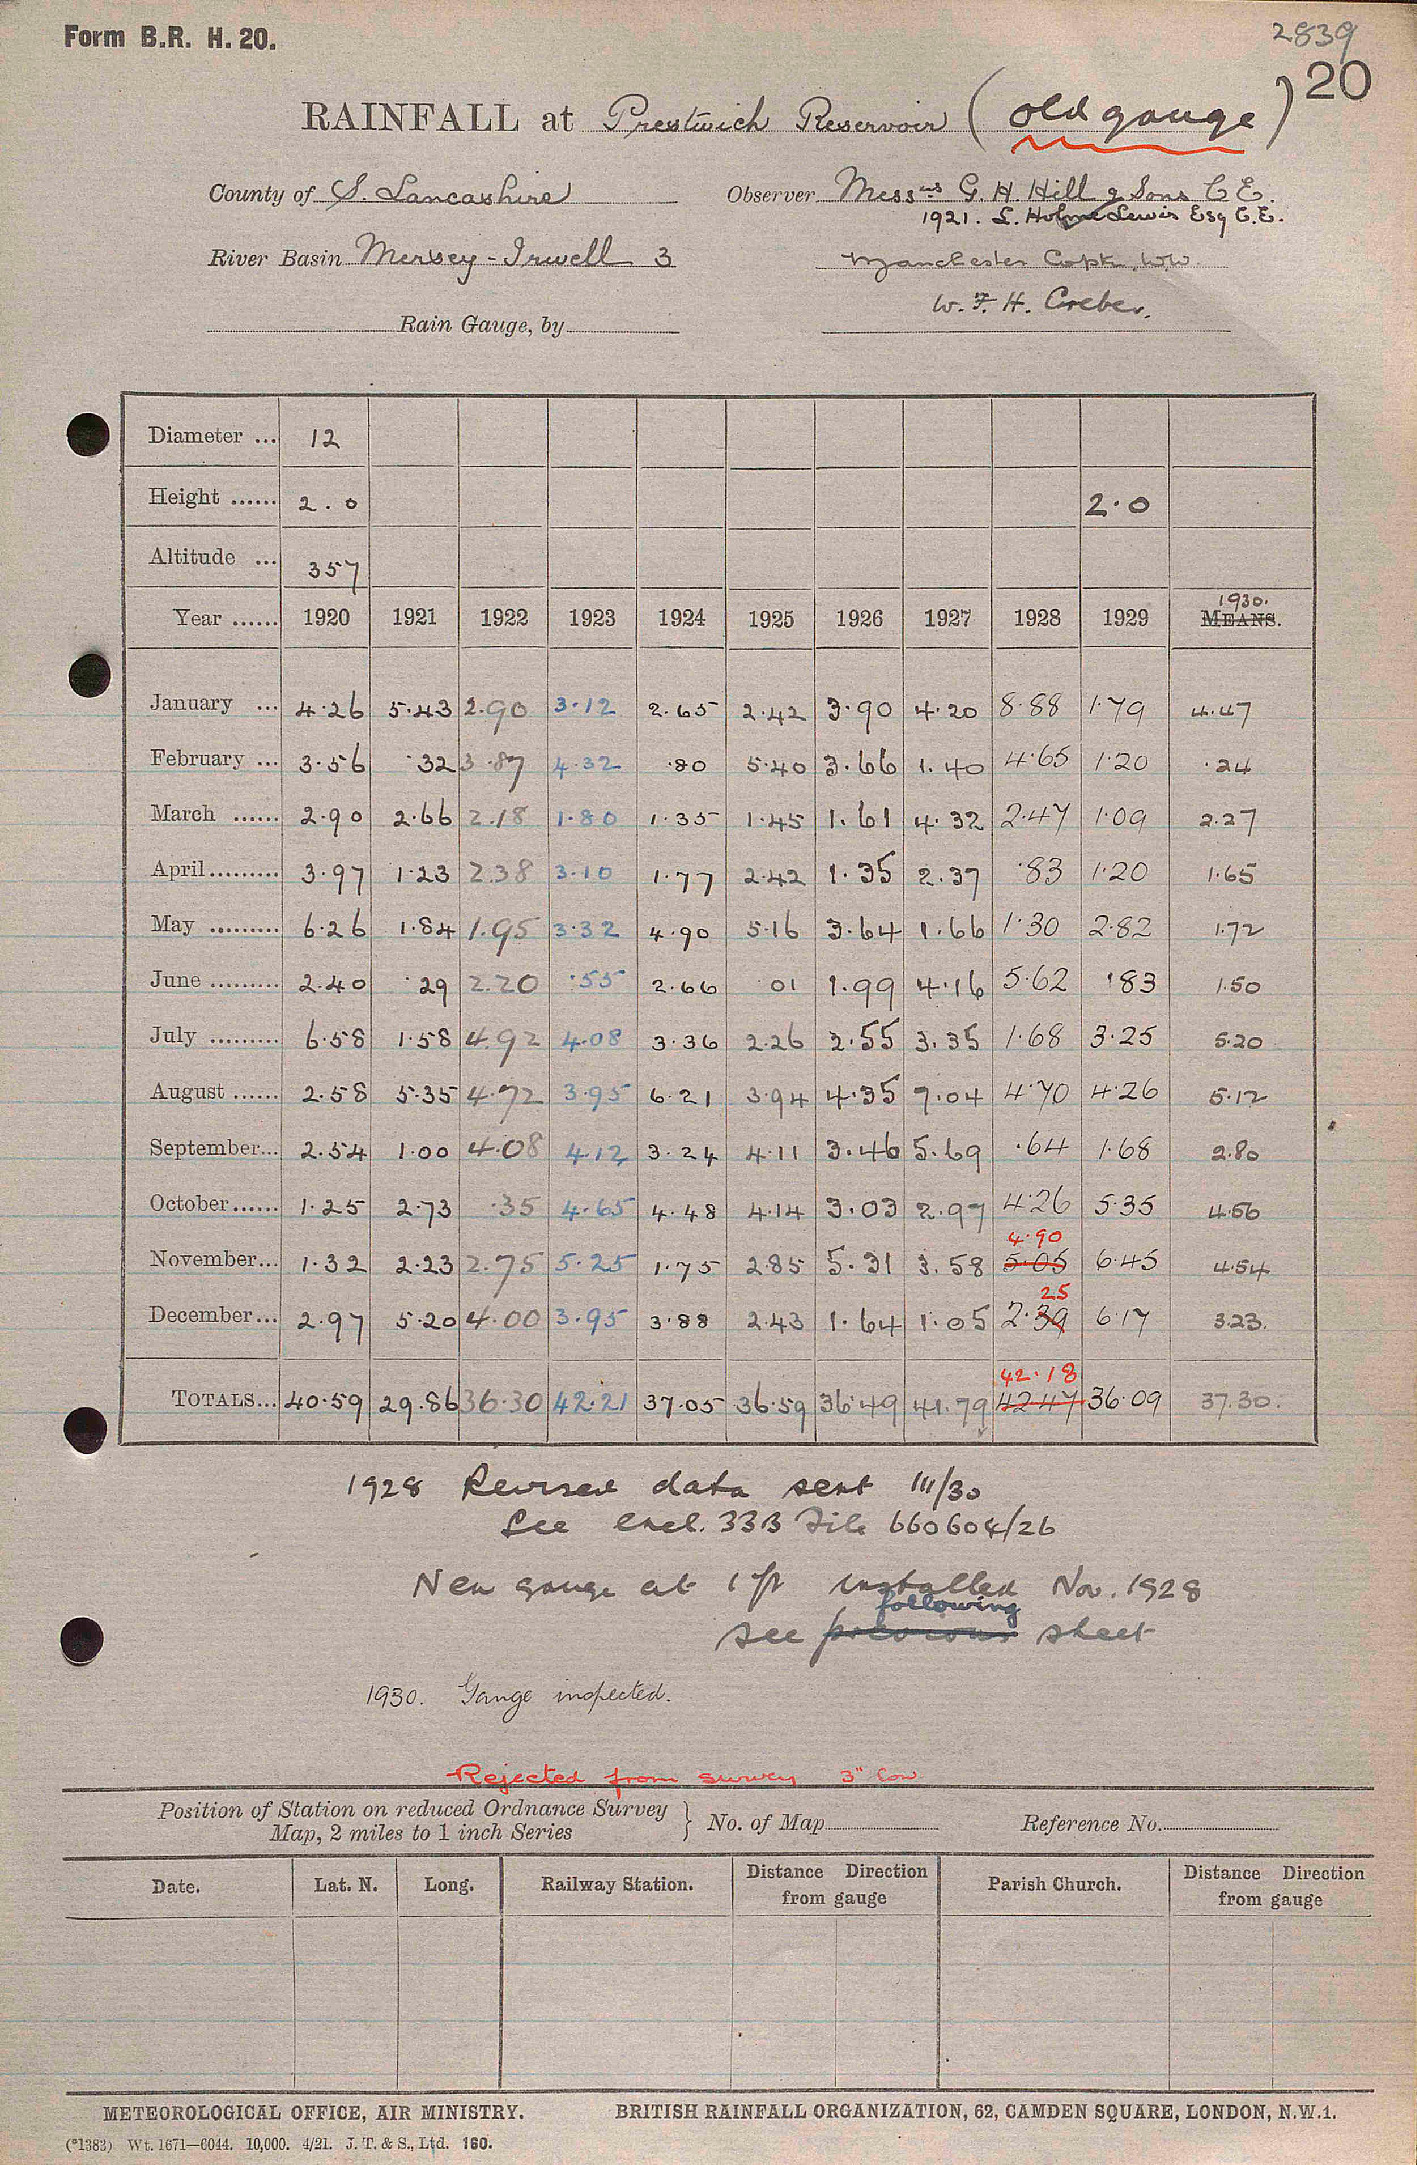 Form B.R. H. 20.
2839
20
RAINFALL at Prestwich Reservoir (old gauge)
County of S. Lancashire
Observer Messrs G. H. Hill & Sons C E.
1921. S. Holme Lewis Esq C.E.
River Basin Mersey - Irwell 3
Manchester Corpn. W.W.
W. F. H. Creber.
Rain Gauge, by
Diameter ... 12
Height ...... 2.0 2.0
Altitude ... 357
1930.
Year ...... 1920 1921 1922 1923 1924 1925 1926 1927 1928 1929 MEANS.
January ... 4.26 5.43 2.90 3.12 2.65 2.42 3.90 4.20 8.88 1.79 4.47
February ... 3.56 .32 3.87 4.32 .80 5.40 3.66 1.40 4.65 1.20 .24
March ...... 2.90 2.66 2.18 1.80 1.35 1.45 1.61 4.32 2.47 1.09 2.27
April......... 3.97 1.23 2.38 3.10 1.77 2.42 1.35 2.37 .83 1.20 1.65
May ......... 6.26 1.84 1.95 3.32 4.90 5.16 3.64 1.66 1.30 2.82 1.72
June ......... 2.40 .29 2.20 .55 2.66 01 1.99 4.16 5.62 .83 1.50
July ......... 6.58 1.58 4.92 4.08 3.36 2.26 2.55 3.35 1.68 3.25 5.20
August ...... 2.58 5.35 4.72 3.95 6.21 3.94 4.35 7.04 4.70 4.26 5.12
September... 2.54 1.00 4.08 4.12 3.24 4.11 3.46 5.69 .64 1.68 2.80
October...... 1.25 2.73 .35 4.65 4.48 4.14 3.03 2.97 4.26 5.35 4.56
4.90
November... 1.32 2.23 2.75 5.25 1.75 2.85 5.31 3.58 5.05 6.45 4.54
25
December... 2.97 5.20 4.00 3.95 3.88 2.43 1.64 1.05 2.39 6.17 3.23.
42.18
TOTALS... 40.59 29.86 36.30 42.21 37.05 36.59 36.49 41.79 42.47 36.09 37.30.
1928 Revised data sent III/30
See encl. 33B File 660604/26
New gauge at 1 ft installed Nov. 1928
following
see previous sheet
1930. Gauge inspected.
Rejected from survey 3" low
Position of Station on reduced Ordnance Survey
Map, 2 miles to 1 inch Series } No. of Map Reference No.
Date. Lat. N. Long. Railway Station. Distance Direction from gauge Parish Church. Distance Direction from gauge
METEOROLOGICAL OFFICE, AIR MINISTRY. BRITISH RAINFALL ORGANIZATION, 62, CAMDEN SQUARE, LONDON, N.W.1.
(*1383) Wt. 1671—6044. 10,000. 4/21. J. T. & S., Ltd. 160.